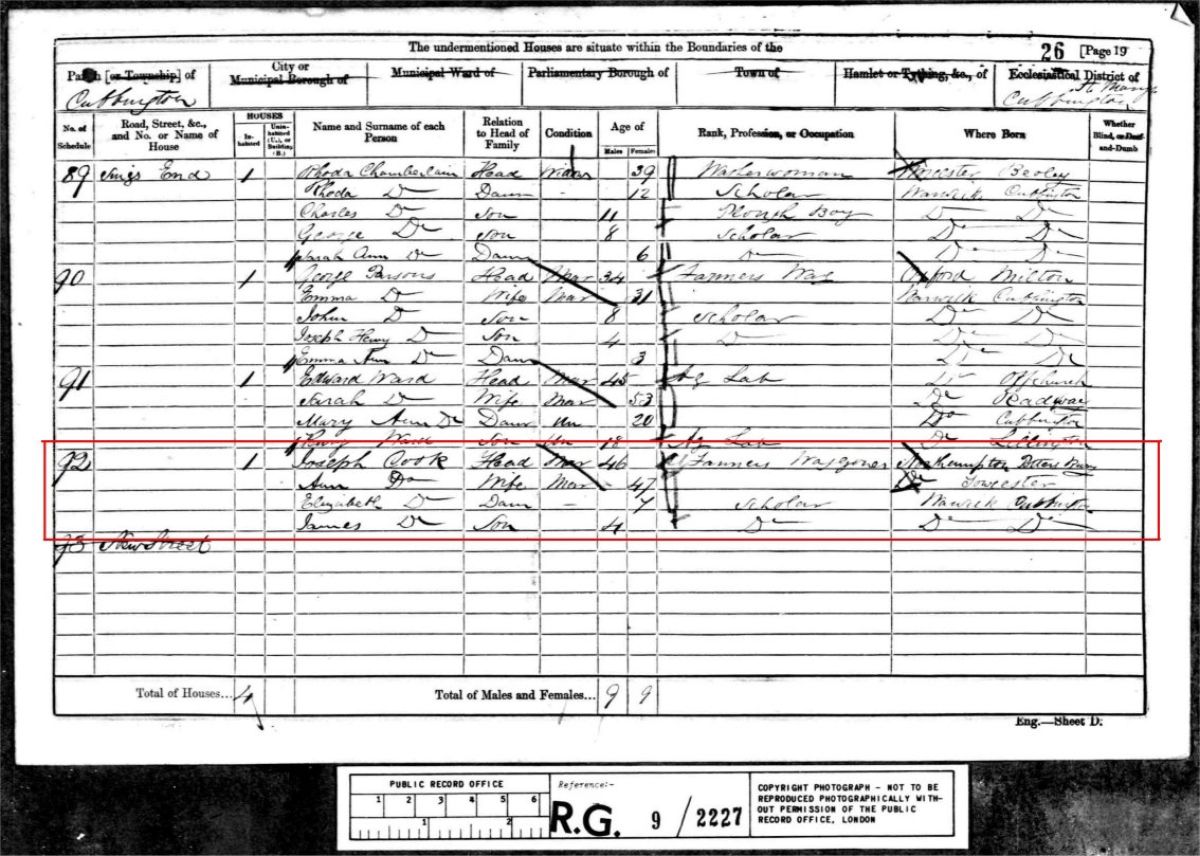 The undermentioned Houses are situate within the Boundaries of the
26 [Page 19
Parish [or Township] of
City or Municipal Borough of
Municipal Ward of
Parliamentary Borough of
Town of
Hamlet or Tything, &c., of
Ecclesiastical District of
Cubbington
St Marys Cubbington
No. of Schedule
Road, Street, &c., and No. or Name of House
HOUSES
In-habited
Unin-habited (U.), or Building (B.)
Name and Surname of each Person
Relation to Head of Family
Condition
Age of
Males
Females
Rank, Profession, or Occupation
Where Born
Whether Blind, or Deaf-and-Dumb
89 End 1 Rhoda Chamberlain Head Widow 39 Washerwoman Worcester Beoley
Rhoda Do Daur 12 Scholar Warwick Cubbington
Charles Do Son 11 Plough Boy Do Do
George Do Son 8 Scholar Do Do
Sarah Ann Do Daur 6 Do Do Do
90 1 George Parsons Head Mar 34 Farmers Wag Oxford Milton
Emma Do Wife Mar 31 Warwick Cubbington
John D Son 8 Scholar Do Do
Joseph Henry D Son 4 D Do Do
Emma Ann Do Daur 3 Do Do
91 1 Edward Ward Head Mar 45 Ag Lab Do Offchurch
Sarah Do Wife Mar 53 Do Radway
Mary Ann Do Daur Un 20 Do Cubbington
Henry Ward Son Un 18 Ag Lab Do Lillington
92 1 Joseph Cook Head Mar 46 Farmers Waggoner Northampton Potters
Ann Do Wife Mar 47 Do Towcester
Elizabeth D Daur 7 Scholar Warwick Cubbington
James Do Son 4 Do Do Do
93 New Street
Total of Houses... 4
Total of Males and Females... 9 9
Eng.—Sheet D.
PUBLIC RECORD OFFICE
1 2 3 4 5 6
1 2
Reference:-
R.G. 9 / 2227
COPYRIGHT PHOTOGRAPH - NOT TO BE
REPRODUCED PHOTOGRAPHICALLY WITH-
OUT PERMISSION OF THE PUBLIC
RECORD OFFICE, LONDON